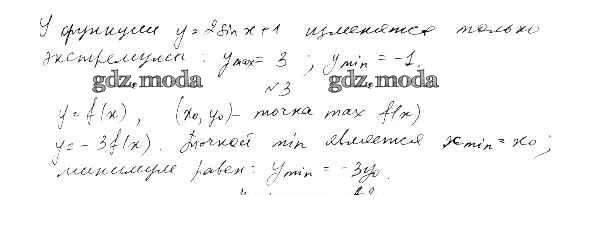 У функции y = 2sin x + 1 изменятся только
экстремумы: ymax = 3 ; ymin = -1.
gdz.moda gdz.moda
№3
y = f(x), (x₀, y₀) - точка max f(x)
y = -3f(x). Точкой min является xmin = x₀ ;
минимум равен: ymin = -3y₀.